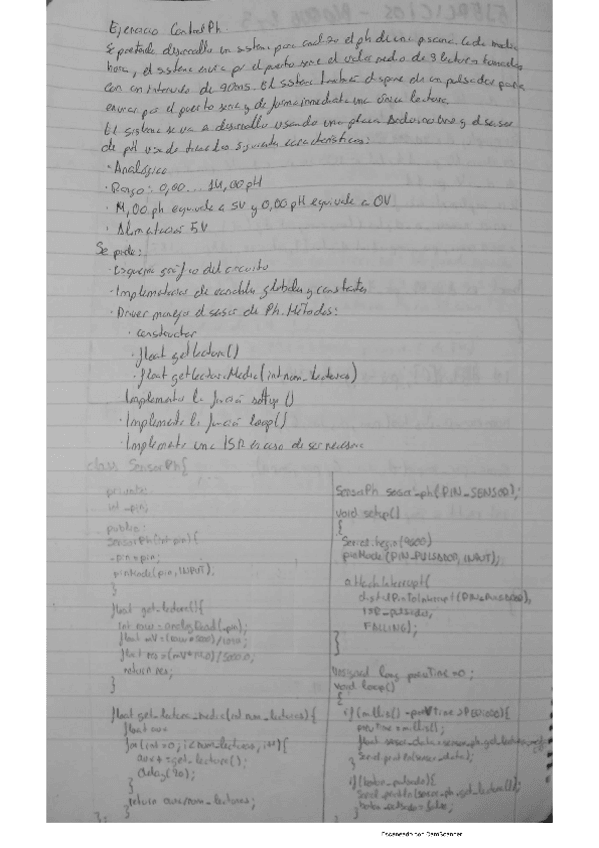 Ejercicio Control Ph.
Se pretende desarrollar un sistema para analizar el ph de una piscina. Cada media
hora, el sistema envia por el puerto serie el valor medio de 9 lecturas tomadas
con un intervalo de 90ms. El sistema también dispone de un pulsador para
enviar por el puerto serie y de forma inmediata una única lectura.
El sistema se va a desarrollar usando una placa Arduino Uno y el sensor
de pH usado tiene las siguientes características:
· Analógico
· Rango: 0,00 ... 14,00 pH
· 14,00 ph equivale a 5V y 0,00 pH equivale a 0V
· Alimentación 5V
Se pide:
· Esquema gráfico del circuito
· Implementación de variables globales y constantes
· Driver manejo el sensor de Ph. Métodos:
· constructor
· float getLectura()
· float getLecturaMedia(int num_lecturas)
Implementar la función setup()
· Implementa la función loop()
· Implementa una ISR en caso de ser necesaria
class SensorPh{
private:
int _pin;
public:
SensorPh(int pin){
_pin = pin;
pinMode(pin, INPUT);
}
float get_lectura(){
int raw = analogRead(_pin);
float mV = (raw * 5000)/
float res = (mV * 14.0)/5000.0;
return res;
}
float get_lectura_media(int num_lecturas){
float aux
for(int =0; i<num_lecturas; i++){
aux += get_lectura();
delay(90);
}
return aux/num_lecturas;
}
};
SensorPh sensor_ph(PIN_SENSOR);
void setup()
{
Serial.begin(9600)
pinMode(PIN_PULSADOR, INPUT);
attachInterrupt(
digitalPinToInterrupt(PIN_PULSADOR),
ISR_pulsador,
FALLING);
}
}
Unsigned long prevTime = 0;
void loop()
{
if(millis() - prevTime > PERIODO){
prevTime = millis();
float sensor_data = sensor_ph.get_lectura_
Serial.println(sensor_data);
}
if(boton_pulsado){
Serial.println(sensor_ph.get_lectura());
boton_pulsado = false;
}
Escaneado con CamScanner